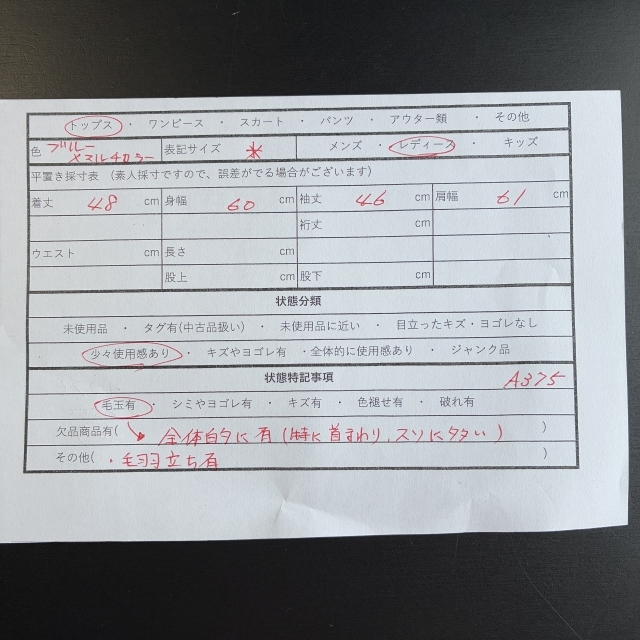 トップス ・ ワンピース ・ スカート ・ パンツ ・ アウター類 ・ その他
色 ブルー 表記サイズ * メンズ ・ レディース ・ キッズ
マルチカラー
平置き採寸表 （素人採寸ですので、誤差がでる場合がございます）
着丈 48 cm 身幅 60 cm 袖丈 46 cm 肩幅 61 cm
裄丈 cm
ウエスト cm 長さ cm
股上 cm 股下 cm
状態分類
未使用品 ・ タグ有(中古品扱い) ・ 未使用品に近い ・ 目立ったキズ・ヨゴレなし
少々使用感あり ・ キズやヨゴレ有 ・全体的に使用感あり ・ ジャンク品
状態特記事項 A375
毛玉有 ・ シミやヨゴレ有 ・ キズ有 ・ 色褪せ有 ・ 破れ有
欠品商品有( 全体的に有(特に首まわり、スソに多い) )
その他( ・毛羽立ち有 )